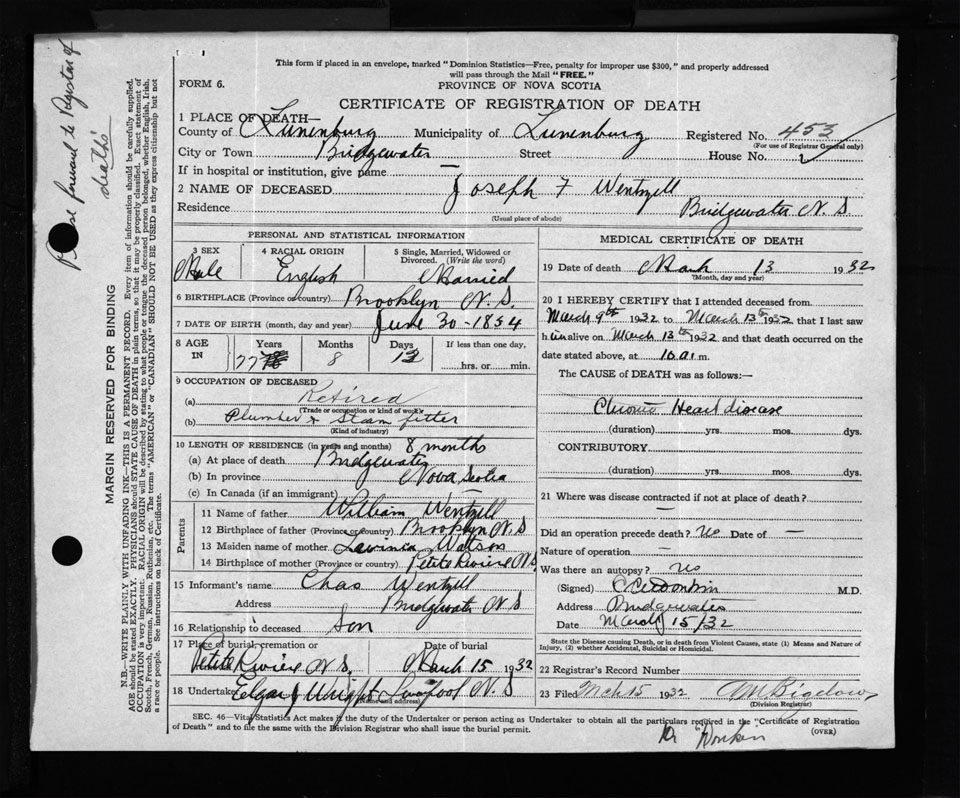 Please forward to Register of
deaths
MARGIN RESERVED FOR BINDING
N.B.—WRITE PLAINLY WITH UNFADING INK—THIS IS A PERMANENT RECORD. Every item of information should be carefully supplied.
AGE should be stated EXACTLY. PHYSICIANS should STATE CAUSE OF DEATH in plain terms, so that it may be properly classified. Exact statement of
OCCUPATION is very important. RACIAL ORIGIN will be described by stating to what people or tongue the deceased person belonged, whether English, Irish,
Scotch, French, German, Russian, Ruthenian, etc. The terms "AMERICAN" or "CANADIAN" SHOULD NOT BE USED as they express citizenship but not
a race or people. See instructions on back of Certificate.
This form if placed in an envelope, marked "Dominion Statistics—Free, penalty for improper use $300," and properly addressed
will pass through the Mail "FREE."
FORM 6. PROVINCE OF NOVA SCOTIA
CERTIFICATE OF REGISTRATION OF DEATH
1 PLACE OF DEATH—
County of Lunenburg Municipality of Lunenburg Registered No. 453
(For use of Registrar General only)
City or Town Bridgewater Street House No.
If in hospital or institution, give name —
2 NAME OF DECEASED Joseph F Wentzell
Residence Bridgewater N. S
(Usual place of abode)
PERSONAL AND STATISTICAL INFORMATION
3 SEX 4 RACIAL ORIGIN 5 Single, Married, Widowed or
Divorced. (Write the word)
Male English Married
6 BIRTHPLACE (Province or country) Brooklyn N. S.
7 DATE OF BIRTH (month, day and year) June 30-1854
8 AGE IN Years Months Days If less than one day,
77 8 13 hrs. or min.
9 OCCUPATION OF DECEASED
(a) Retired
(Trade or occupation or kind of work)
(b) Plumber & Steam fitter
(Kind of industry)
10 LENGTH OF RESIDENCE (in years and months) 8 months
(a) At place of death Bridgewater
(b) In province Nova Scotia
(c) In Canada (if an immigrant)
Parents
11 Name of father William Wentzell
12 Birthplace of father (Province or country) Brooklyn N. S
13 Maiden name of mother Lavinia Watson
14 Birthplace of mother (Province or country) Petite Riviere N. S.
15 Informant's name Chas Wentzell
Address Bridgewater N. S
16 Relationship to deceased Son
17 Place of burial, cremation or Date of burial
Petite Riviere N. S. March 15 1932
18 Undertaker Elgar J Wright Liverpool N. S
(Name and address)
MEDICAL CERTIFICATE OF DEATH
19 Date of death March 13 1932
(Month, day and year)
20 I HEREBY CERTIFY that I attended deceased from
March 9th 1932 to March 13th 1932 that I last saw
him alive on March 13th 1932 and that death occurred on the
date stated above, at 10 a. m.
The CAUSE of DEATH was as follows:—
Chronic Heart disease
(duration) yrs. mos. dys.
CONTRIBUTORY.
(duration) yrs. mos. dys.
21 Where was disease contracted if not at place of death?
—
Did an operation precede death? No Date of —
Nature of operation —
Was there an autopsy? No
(Signed) M.D.
Address Bridgewater
Date March 15/32
State the Disease causing Death, or in death from Violent Causes, state (1) Means and Nature of
Injury, (2) whether Accidental, Suicidal or Homicidal.
22 Registrar's Record Number
23 Filed Mch 15 1932 Bigelow
(Division Registrar)
SEC. 46—Vital Statistics Act makes it the duty of the Undertaker or person acting as Undertaker to obtain all the particulars required in the "Certificate of Registration
of Death" and to file the same with the Division Registrar who shall issue the burial permit. (OVER)
Dr Donkin